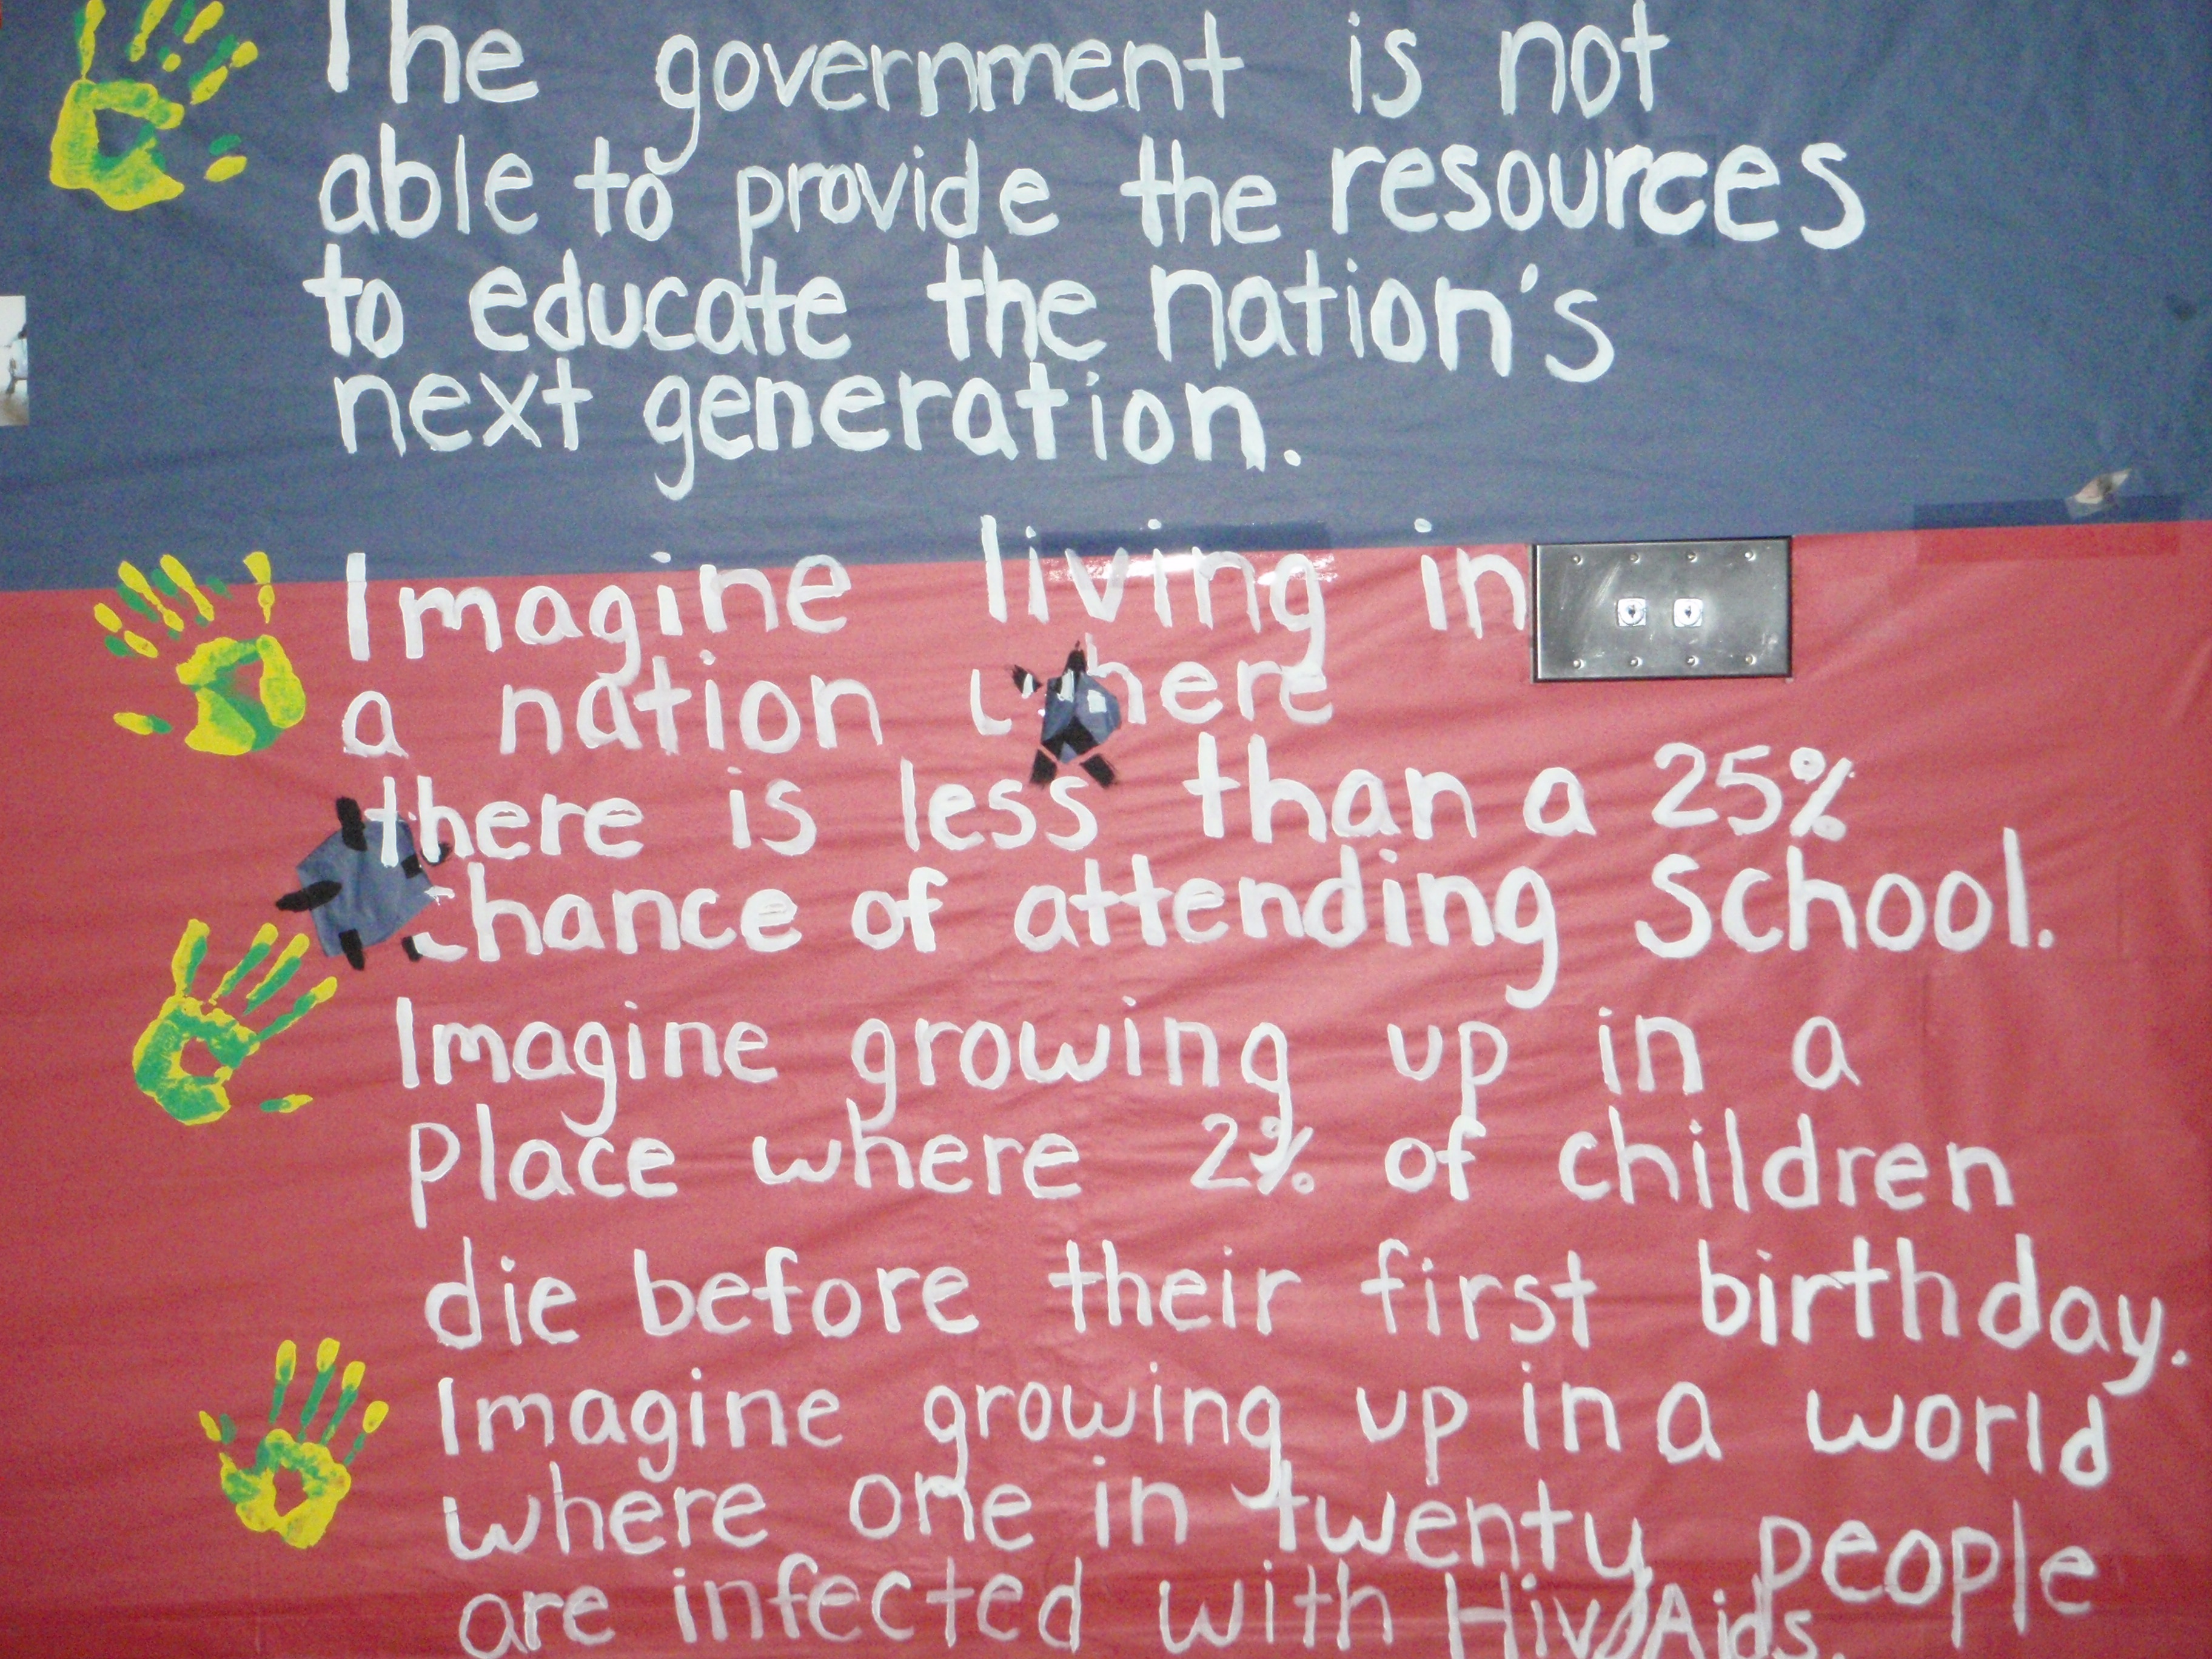 The government is not
able to provide the resources
to educate the nation's
next generation.
Imagine living in
a nation where
there is less than a 25%
chance of attending School.
Imagine growing up in a
Place where 2% of children
die before their first birthday.
Imagine growing up in a world
where one in twenty people
are infected with Hiv/Aids.